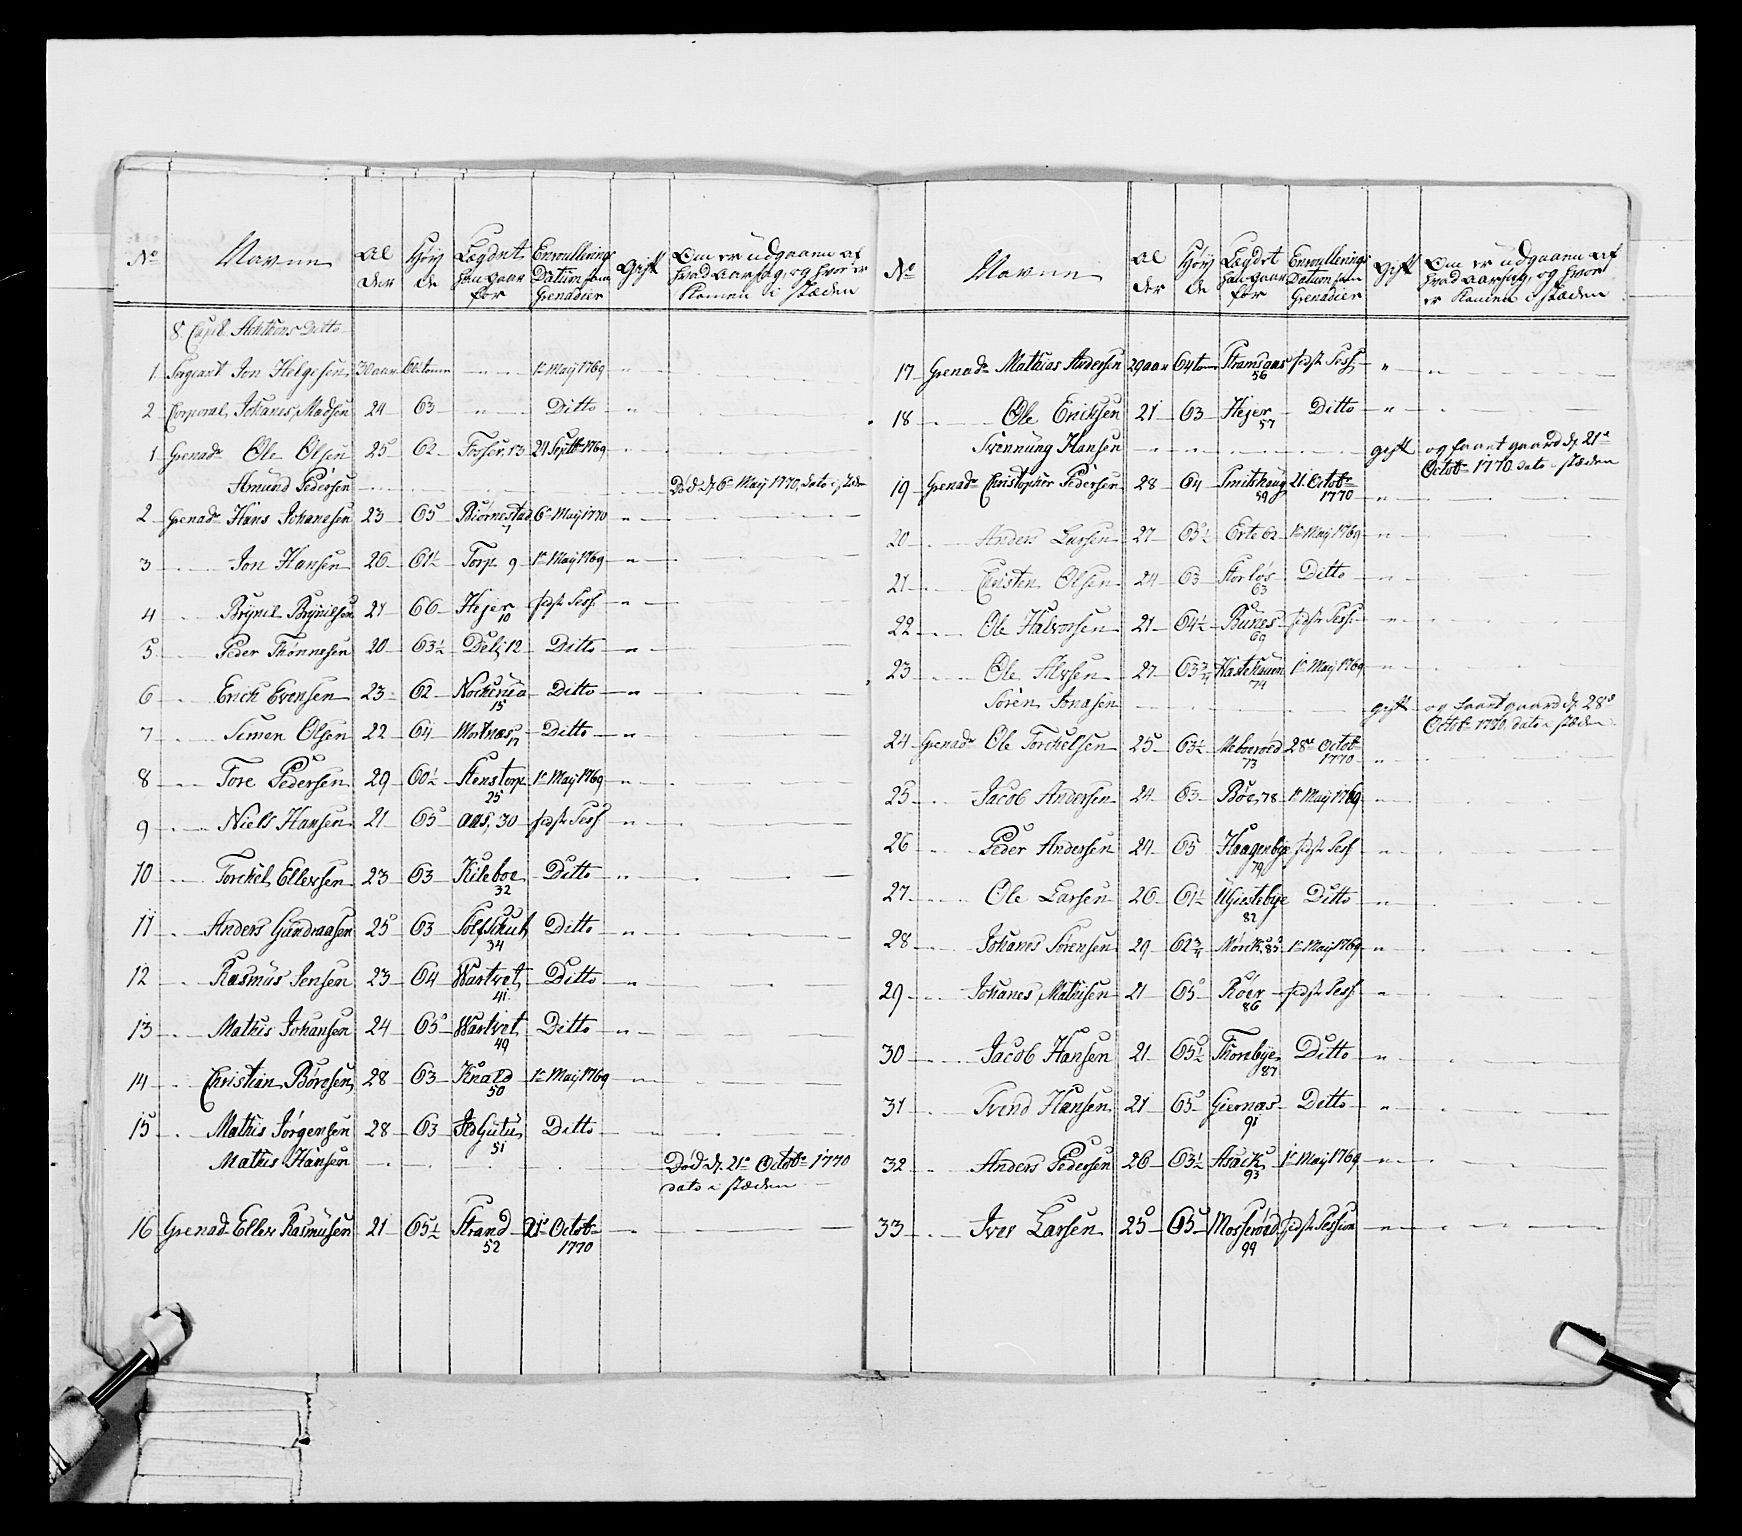 No Navne Alder Høyde Lægdet han gaar for Enroullerings Datum som Grenadier Gift Om er udgaaen af hvad aarsag, og hvor er Komen i stæden
8 Capit. Ditto
1 Sergeant Jon Helgesen 30 aar tom 1e Maij 1769
2 Corporal Johanes Madsen 24 63 " Ditto "
1 Grenadr Ole Olsen 25 62 Fosser 13 24 Septbr 1769
Amund Pedersen Død d. 6e Maij 1770, dato i stæden
2 Grenadr Hans Johanesen 23 65 Biørnestad 7 6e Maij 1770 "
3 Jon Hansen 26 61½ Torp 9 1e Maij 1769 "
4 Brynil Brynilsen 21 66 Hejer 10 sidste Sess. "
5 Peder Thønnesen 20 63½ Deli 12 Ditto "
6 Erich Evensen 23 62 15 Ditto "
7 Simen Olsen 22 64 Ditto "
8 Tore Pedersen 29 60½ Stenstorp 25 1e Maij 1769 "
9 Niels Hansen 21 65 Aas, 30 sidste Sess "
10 Torchel Ellersen 23 63 Kileboe 32 Ditto "
11 Anders Gundraasen 25 63 34 Ditto "
12 Rasmus Jensen 23 64 Wartvet 41 Ditto "
13 Mathis Johansen 24 65 Wartvet 49 Ditto "
14 Christian Børesen 28 63 Knald 50 1e Maij 1769
15 Mathis Jørgensen 28 63 51 Ditto
Mathis Hansen Død d. 21e Octobr 1770
dato i stæden
16 Grenad Eller Rasmusen 21 65½ Strand 52 21e Octobr 1770
No Navne Alder Høyde Lægdet han gaar for Enroullerings Datum som Grenadier Gift Om er udgaaen af hvad aarsag, og hvor er Komen i stæden
17 Grenadr Mathias Andersen 29 aar 64 tom 56 sidste Sess "
18 Ole Erichsen 21 63 Hejer 57 Ditto "
Svennung Hansen gift og faaet gaard d. 21e
Octobr 1770 dato i stæden
19 Grenadr Christopher Pedersen 28 64 Smitshaug 59 21 Octobr 1770 "
20 Anders Larsen 27 63½ Erte 62 1e Maij 1769 "
21 Christen Olsen 24 63 Storløs 63 Ditto "
22 Ole Halvorsen 21 64½ Bunes 69 sidste Sess. "
23 Ole Alvsen 27 63¾ 74 1e Maij 1769 "
Søren Jonasen gift og faaet gaard d. 28e
Octobr 1770, dato i stæden
24 Grenadr Ole Torchelsen 25 63½ 73 28e Octobr 1770 "
25 Jacob Andersen 24 63 Bøe, 78 1e Maij 1769 "
26 Peder Andersen 24 65 Haagenbye 79 sidste Sess "
27 Ole Larsen 26 61½ 82 Ditto "
28 Johanes Sørensen 29 62¾ Mørck, 85 1e Maij 1769 "
29 Johanes Mathisen 21 65 Røer 86 sidste Sess. "
30 Jacob Hansen 21 65½ Thornbye 87 Ditto "
31 Svend Hansen 21 65 Giernæs 91 Ditto "
32 Anders Pedersen 26 63½ Asack 93 1e Maij 1769 "
33 Iver Larsen 25 65 Mosserød 99 sidste Session "